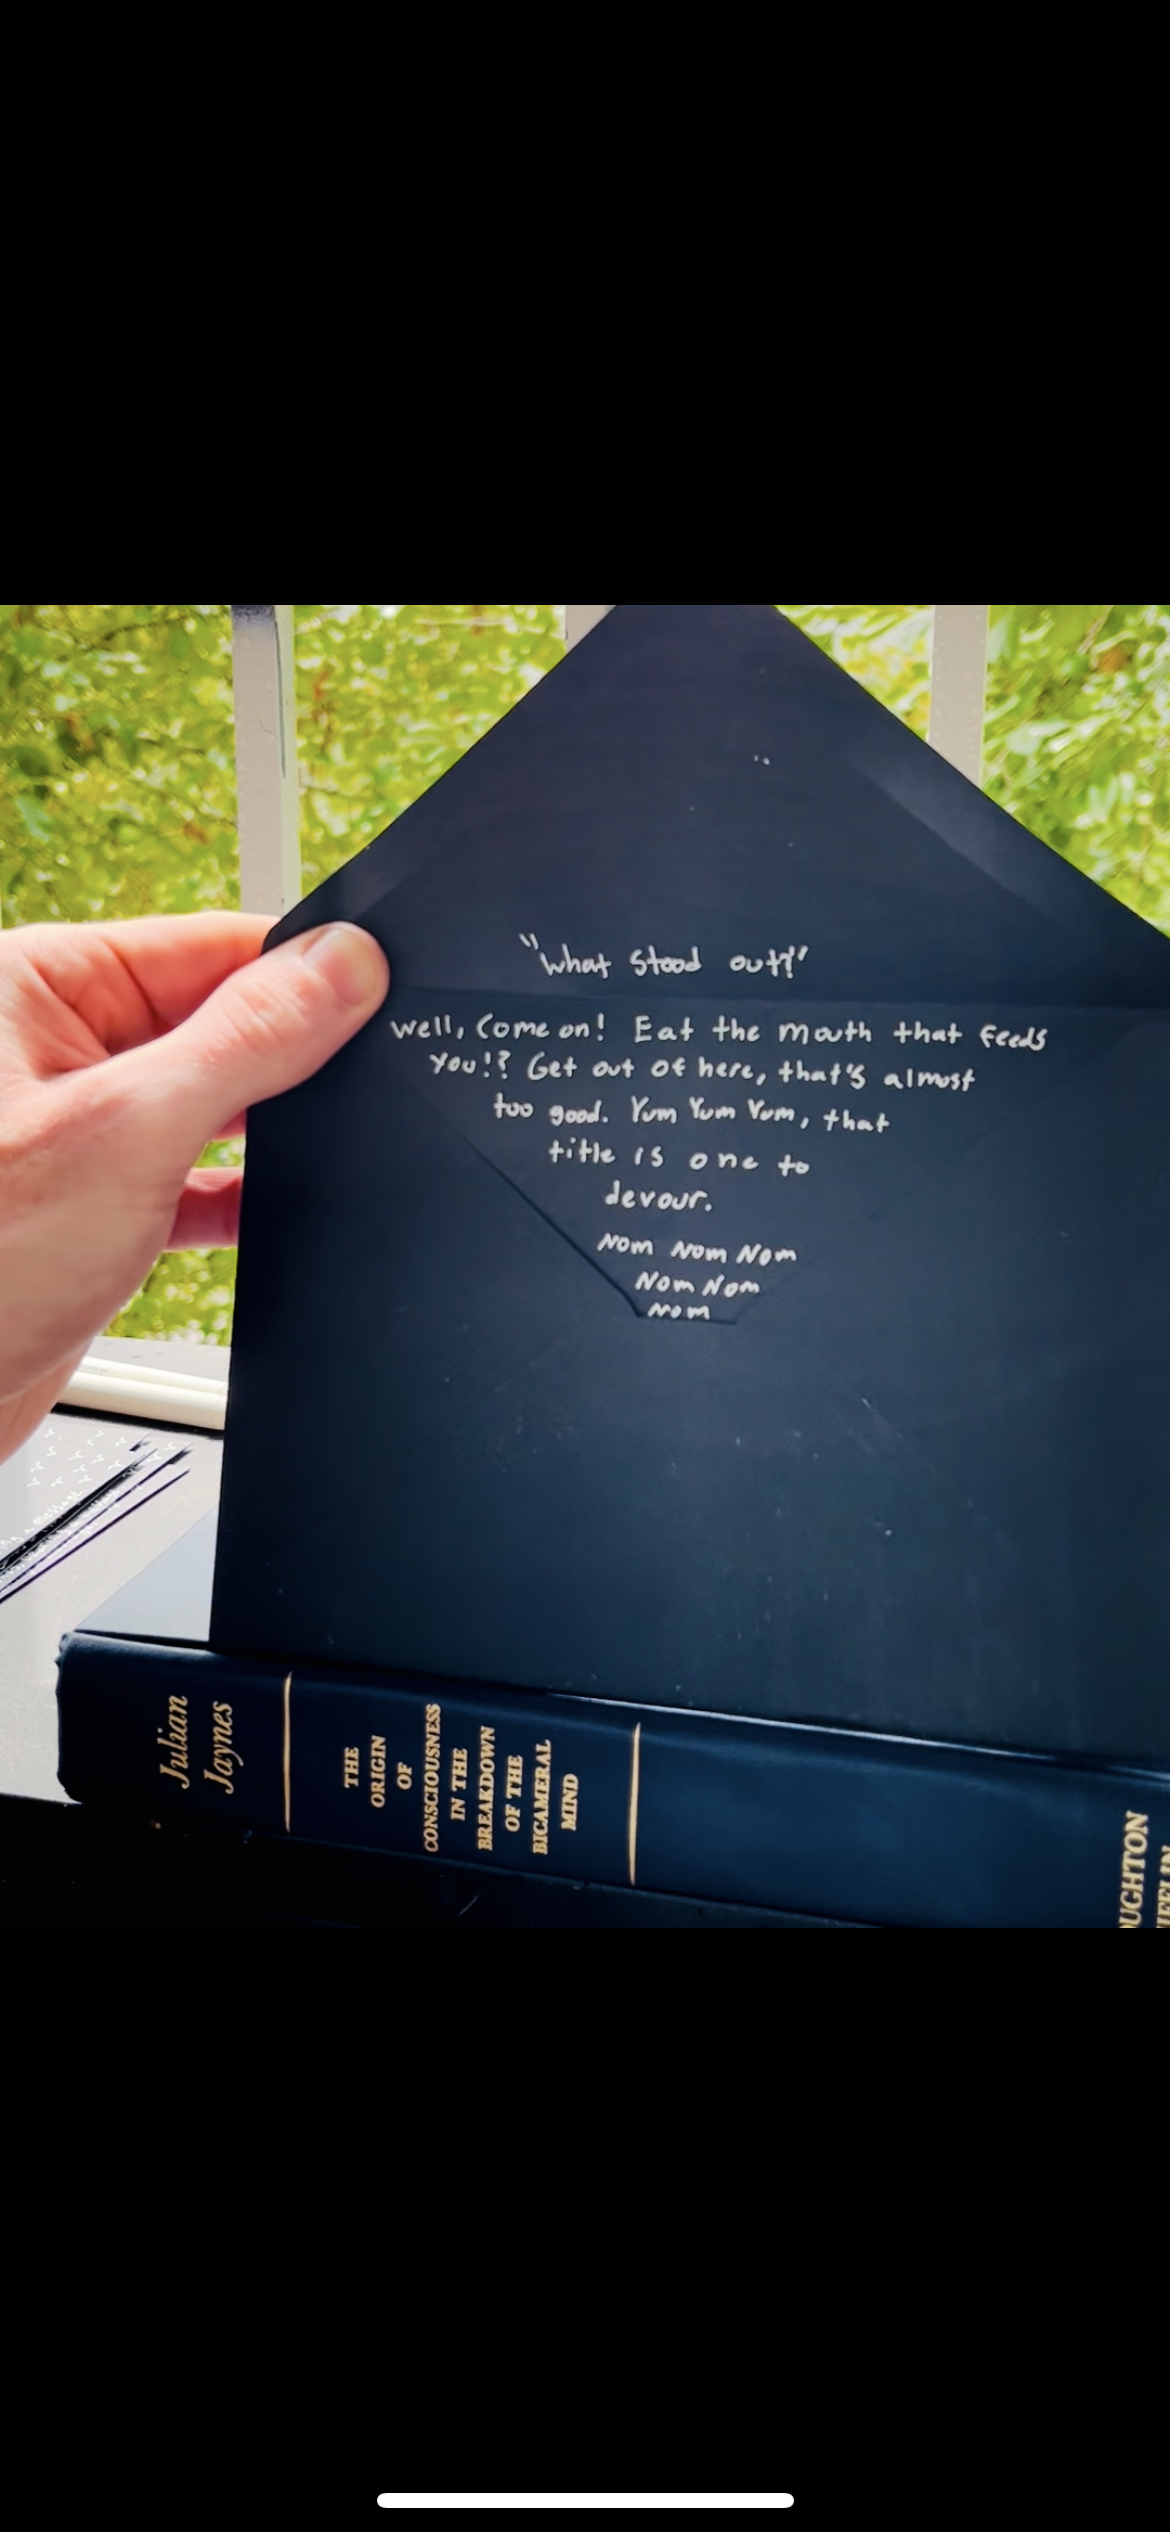 "What stood out?"
Well, Come on! Eat the mouth that feeds
You!? Get out of here, that's almost
too good. Yum Yum Yum, that
title is one to
devour.
Nom Nom Nom
Nom Nom
Nom
Julian
Jaynes
THE
ORIGIN
OF
CONSCIOUSNESS
IN THE
BREAKDOWN
OF THE
BICAMERAL
MIND
OUGHTON